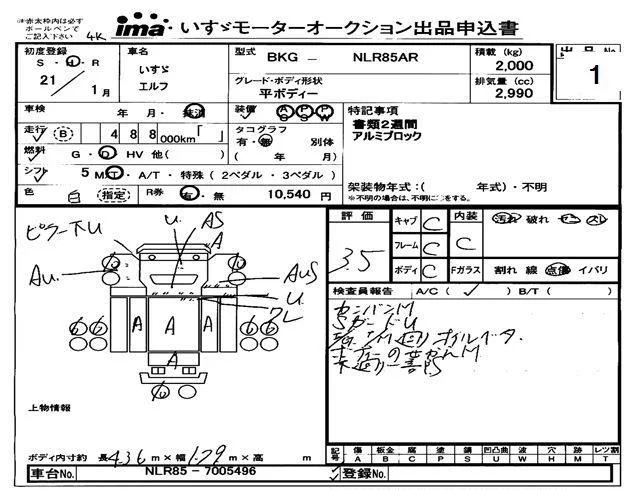 ※赤太枠内は必ず
ボールペンで
ご記入下さい
4K
ima いすゞモーターオークション出品申込書
初度登録 S・H・R 21/1月
車名 いすゞ エルフ
型式 BKG - NLR85AR
グレード・ボディ形状 平ボディー
積載 (kg) 2,000
排気量 (cc) 2,990
出品No. 1
車検 年 月・抹消
走行 (B) 488,000km「 」
燃料 G・D HV 他( )
シフト 5 MT・A/T・特殊(2ペダル・3ペダル)
色 白 (指定) R券 有・無 10,540 円
装備 AS PS PW
タコグラフ 有・無 別体
( 年 月)
特記事項
書類2週間
アルミブロック
架装物年式:( 年式)・不明
※不明の場合は、不明に○をする。
評価 3.5
キャブ C
フレーム C
ボディ C
内装 C
Fガラス
汚れ 破れ ヤニ スレ
割れ 線 点傷 イバリ
検査員報告 A/C( ✓ ) B/T( )
カンバンM
SガードU
ピラー下U
U.
AS
A
Au.
AUS
U
A A A
A
上物情報
ボディ内寸約 長 4.36 m×幅 1.79 m×高 m
記号 傷 板金 腐 塗 錆 凹凸曲 波 穴 跡 レンズ割
A B C P S U W H M T
車台No. NLR85 - 7005496
登録No.